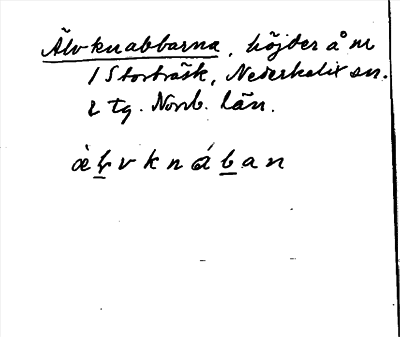 Älvknabbarna, höjder å m
1 Storträsk, Nederkalix sn.
2 tg. Norrb. län.
ælvknában